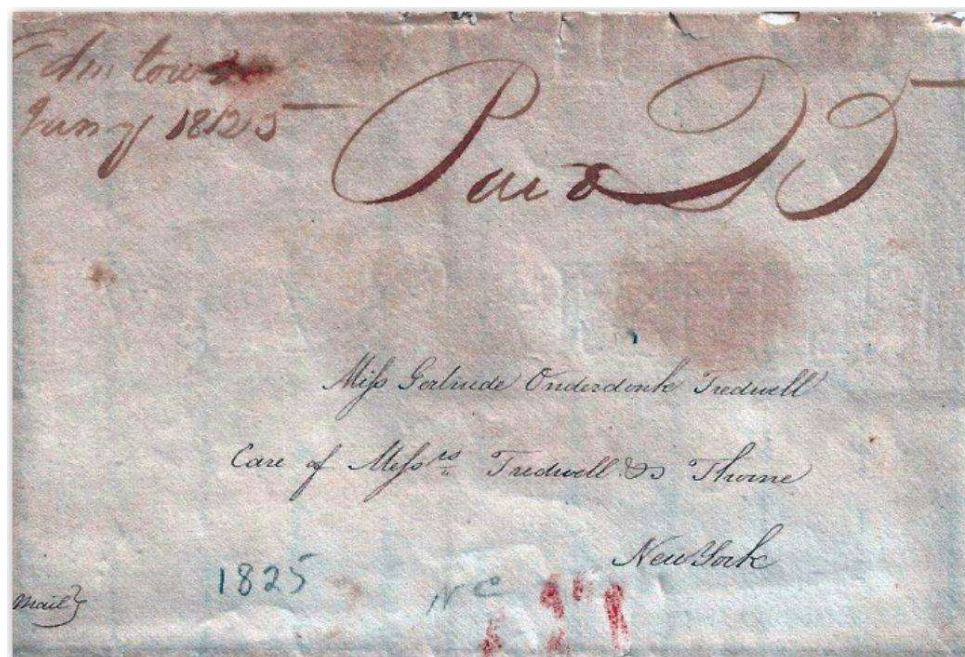 Edentown
Jany 1825
Paid 25
Miss Gertrude Onderdonk Tredwell
Care of Messrs Tredwell & Thorne
New York
1825
NC
Mail